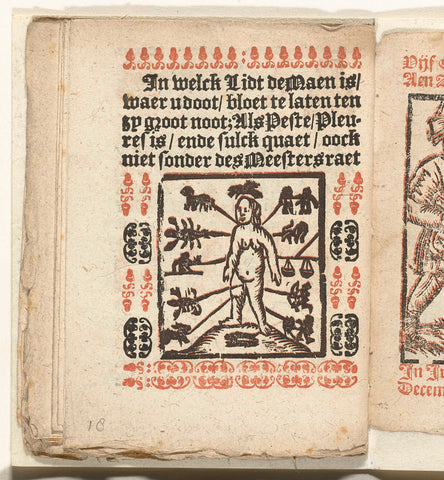 In welck Lidt de Maen is/
waer u doot/ bloet te laten ten
zy groot noot: Als Peste/ Pleu-
res is/ ende sulck quaet/ oock
niet sonder des Meesters raet
18
Vijf
Aen
In Ju
Decem